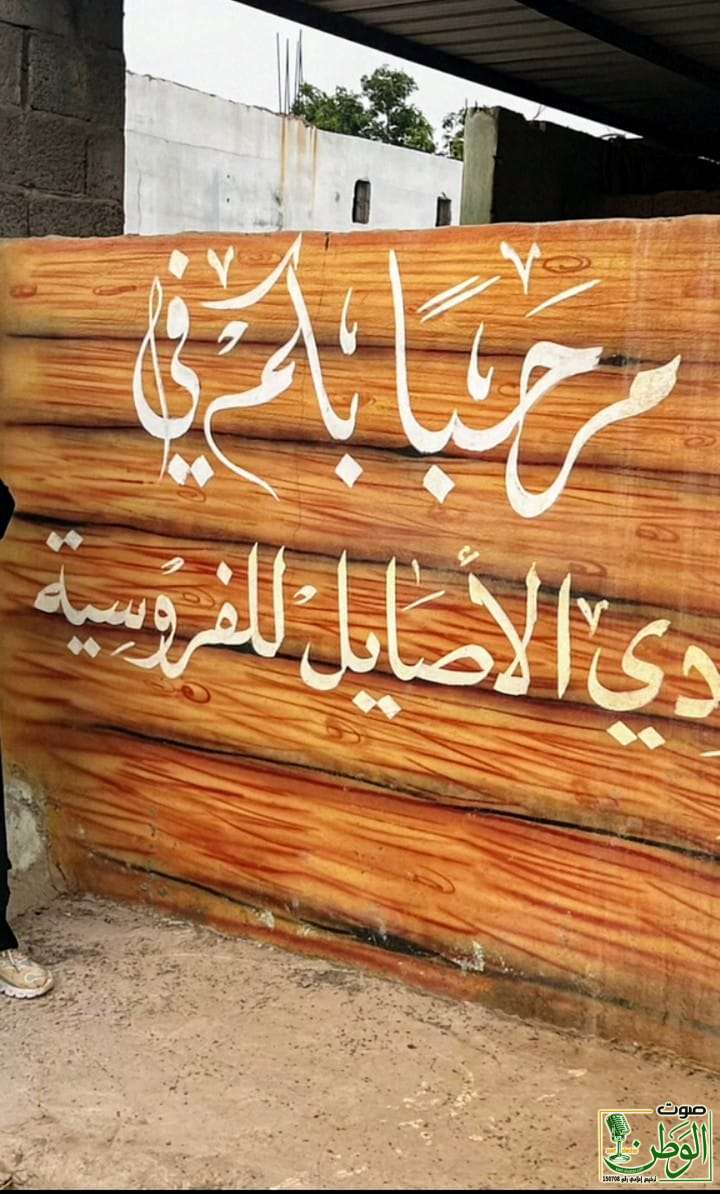 مرحبًا بكم في
دي الأصايل للفروسية
صوت
الوطن
ترخيص إعلامي رقم 150708